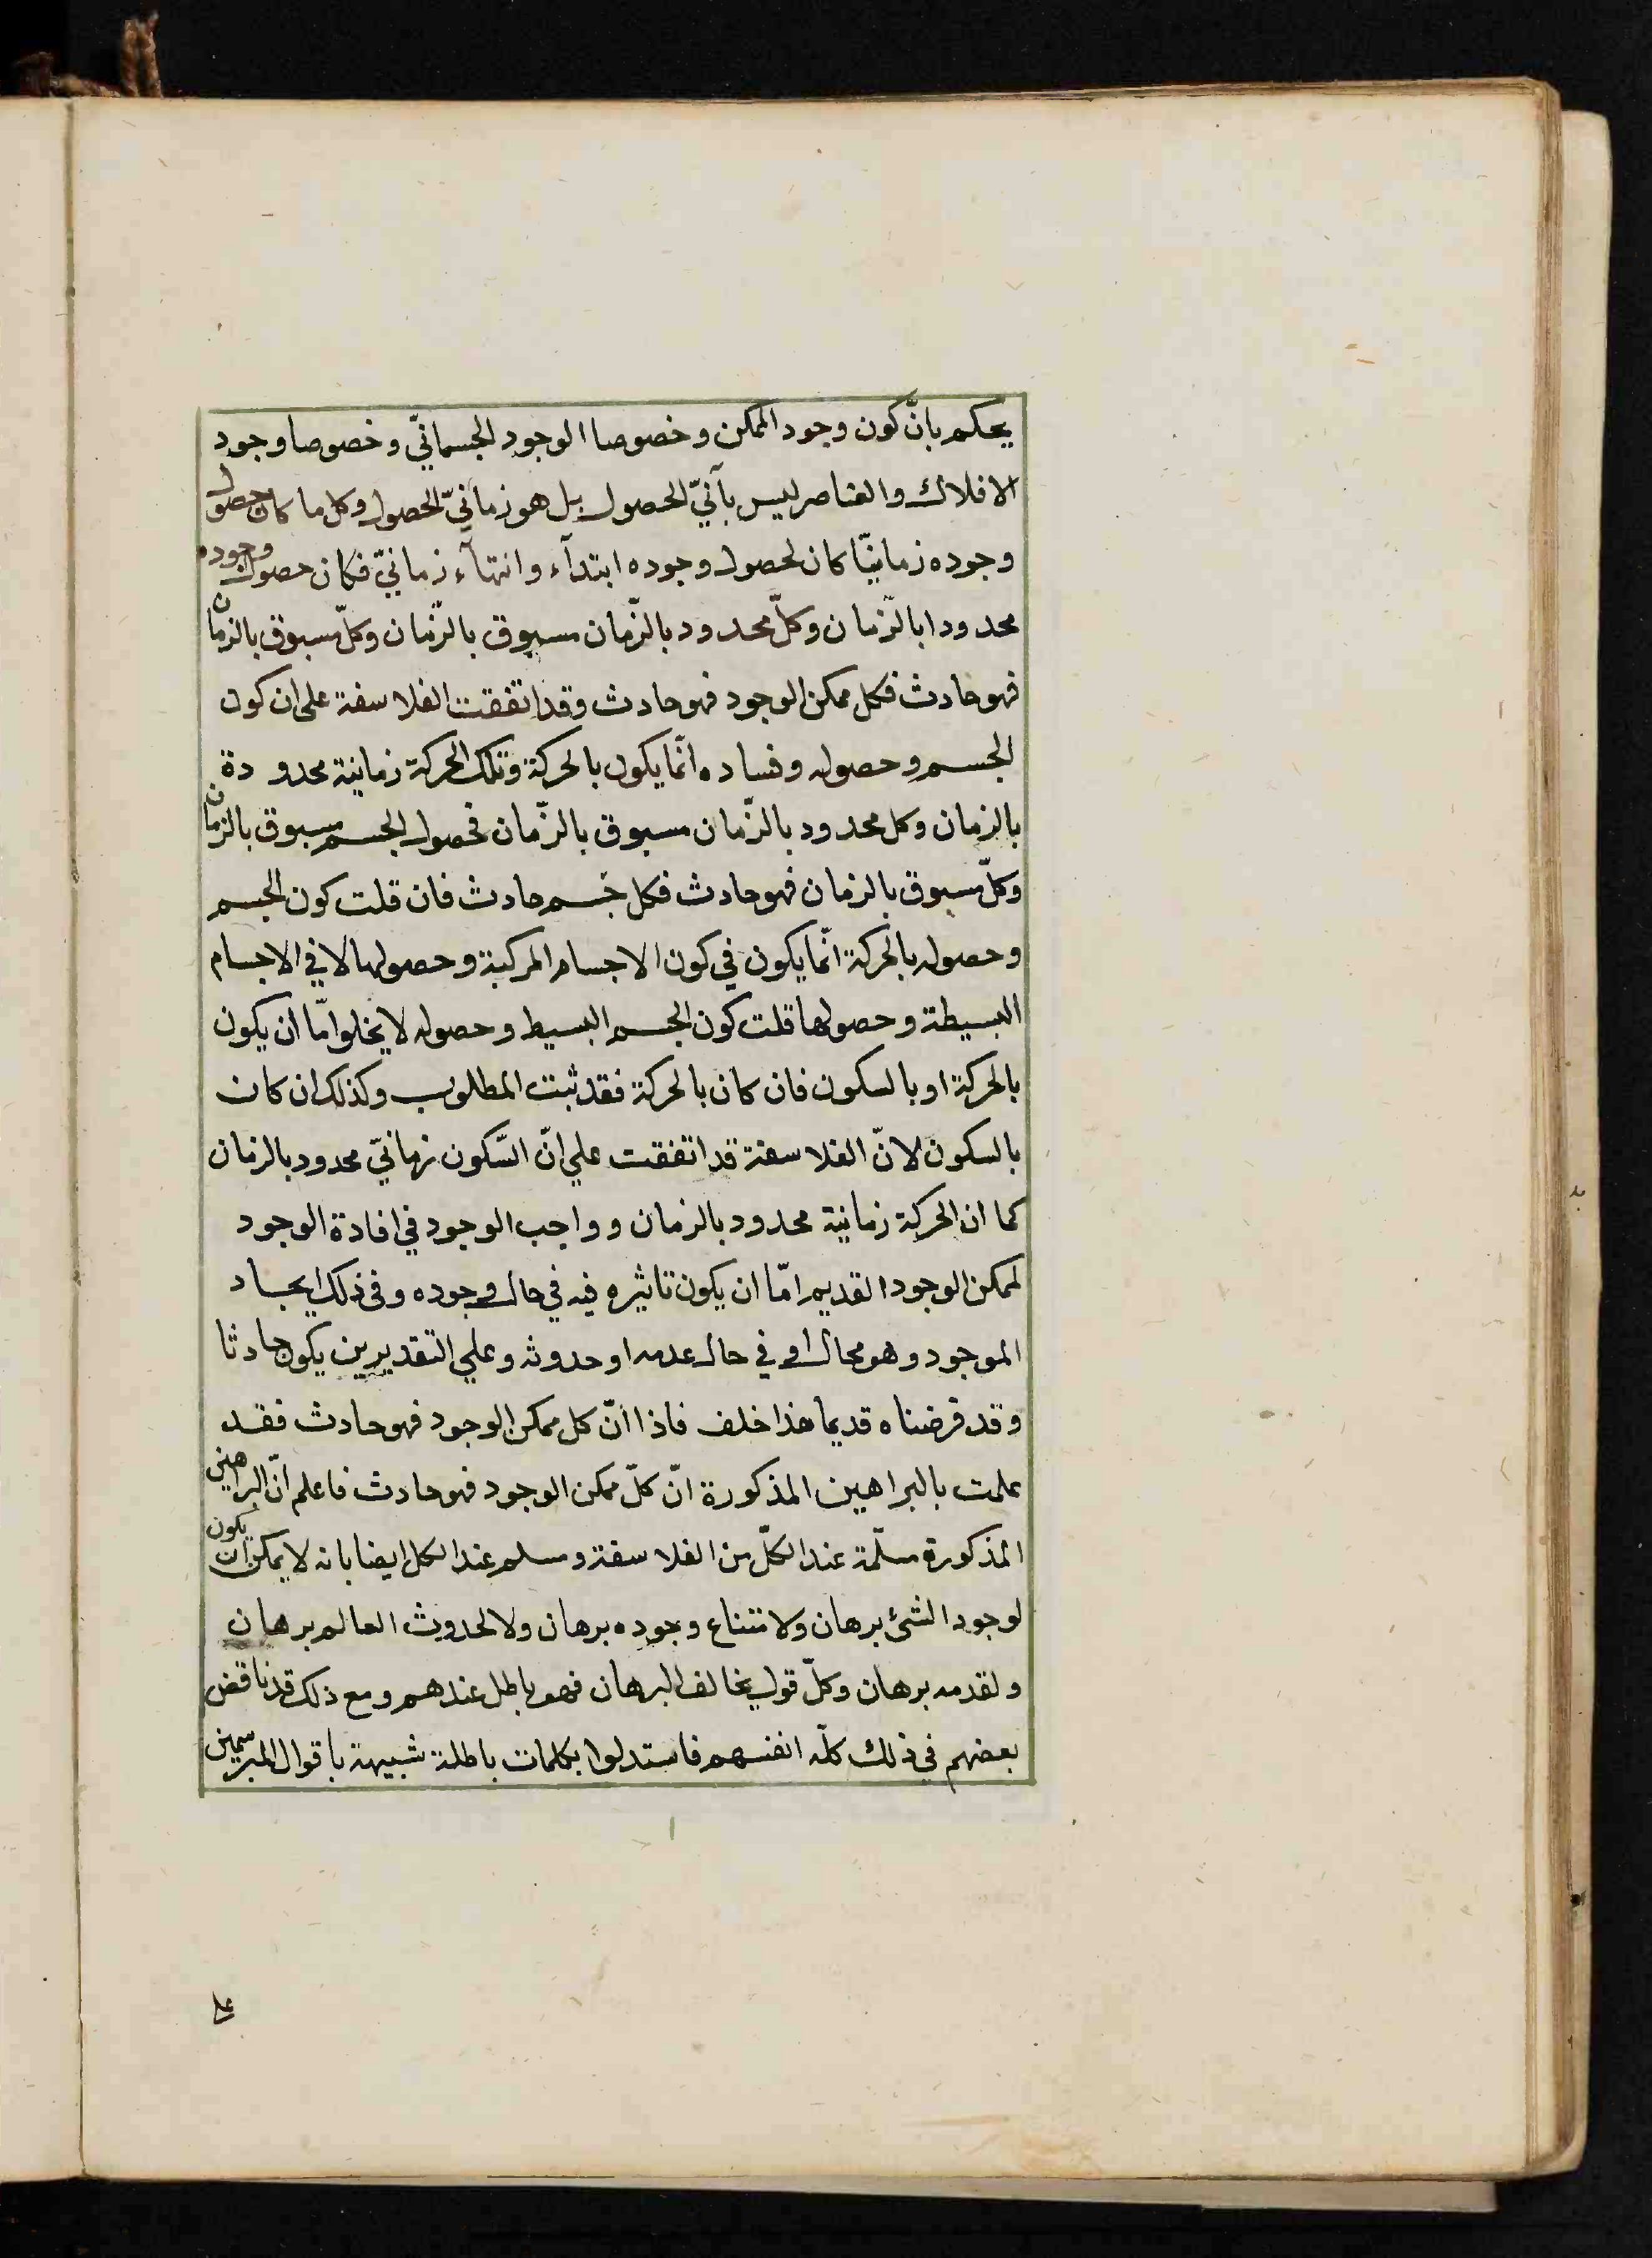 يحكم بانّ كون وجود الممكن وخصوصا الوجود الجسمانيّ وخصوصا وجود
الافلاك والعناصر ليس بآنيّ الحصول بل هو زمانيّ الحصول وكل ما كان حصول
وجوده زمانيّا كان لحصول وجوده ابتدآء وانتهآء زمانيّ فكان حصول وجوده
محدودا بالزّمان وكلّ محدود بالزّمان مسبوق بالزّمان وكلّ مسبوق بالزمان
فهو حادث فكل ممكن الوجود فهو حادث وقد اتفقت الفلاسفة على ان كون
الجسم وحصوله وفساده انّما يكون بالحركة وتلك الحركة زمانية محدودة
بالزمان وكل محدود بالزّمان مسبوق بالزّمان فحصول الجسم مسبوق بالزمان
وكلّ مسبوق بالزمان فهو حادث فكل جسم حادث فان قلت كون الجسم
وحصوله بالحركة انّما يكون في كون الاجسام المركبة وحصولها لا في الاجسام
البسيطة وحصولها قلت كون الجسم البسيط وحصوله لا يخلوا مّا ان يكون
بالحركة او بالسكون فان كان بالحركة فقد ثبت المطلوب وكذلك ان كان
بالسكون لانّ الفلاسفة قد اتفقت علي انّ السّكون زمانيّ محدود بالزمان
كما ان الحركة زمانية محدود بالزمان وواجب الوجود في افادة الوجود
لممكن الوجود القديم امّا ان يكون تاثيره فيه في حال وجوده وفى ذلك ايجاد
الموجود وهو محال او في حال عدمه او حدوثه وعلي التقديرين يكون حادثا
وقد فرضناه قديما هذا خلف فاذا انّ كل ممكن الوجود فهو حادث فقد
علمت بالبراهين المذكورة انّ كلّ ممكن الوجود فهو حادث فاعلم انّ البراهين
المذكورة مسلّمة عند الكلّ من الفلاسفة ومسلم عند الكل ايضا بانه لا يمكن ان يكون
لوجود الشئ برهان ولامتناع وجوده برهان ولا لحدوث العالم برهان
ولقدمه برهان وكلّ قول يخالف البرهان فهو باطل عندهم ومع ذلك قد ناقض
بعضهم في ذلك كلّه انفسهم فاستدلوا بكلمات باطلة شبيهة باقوال المبرسمين
على